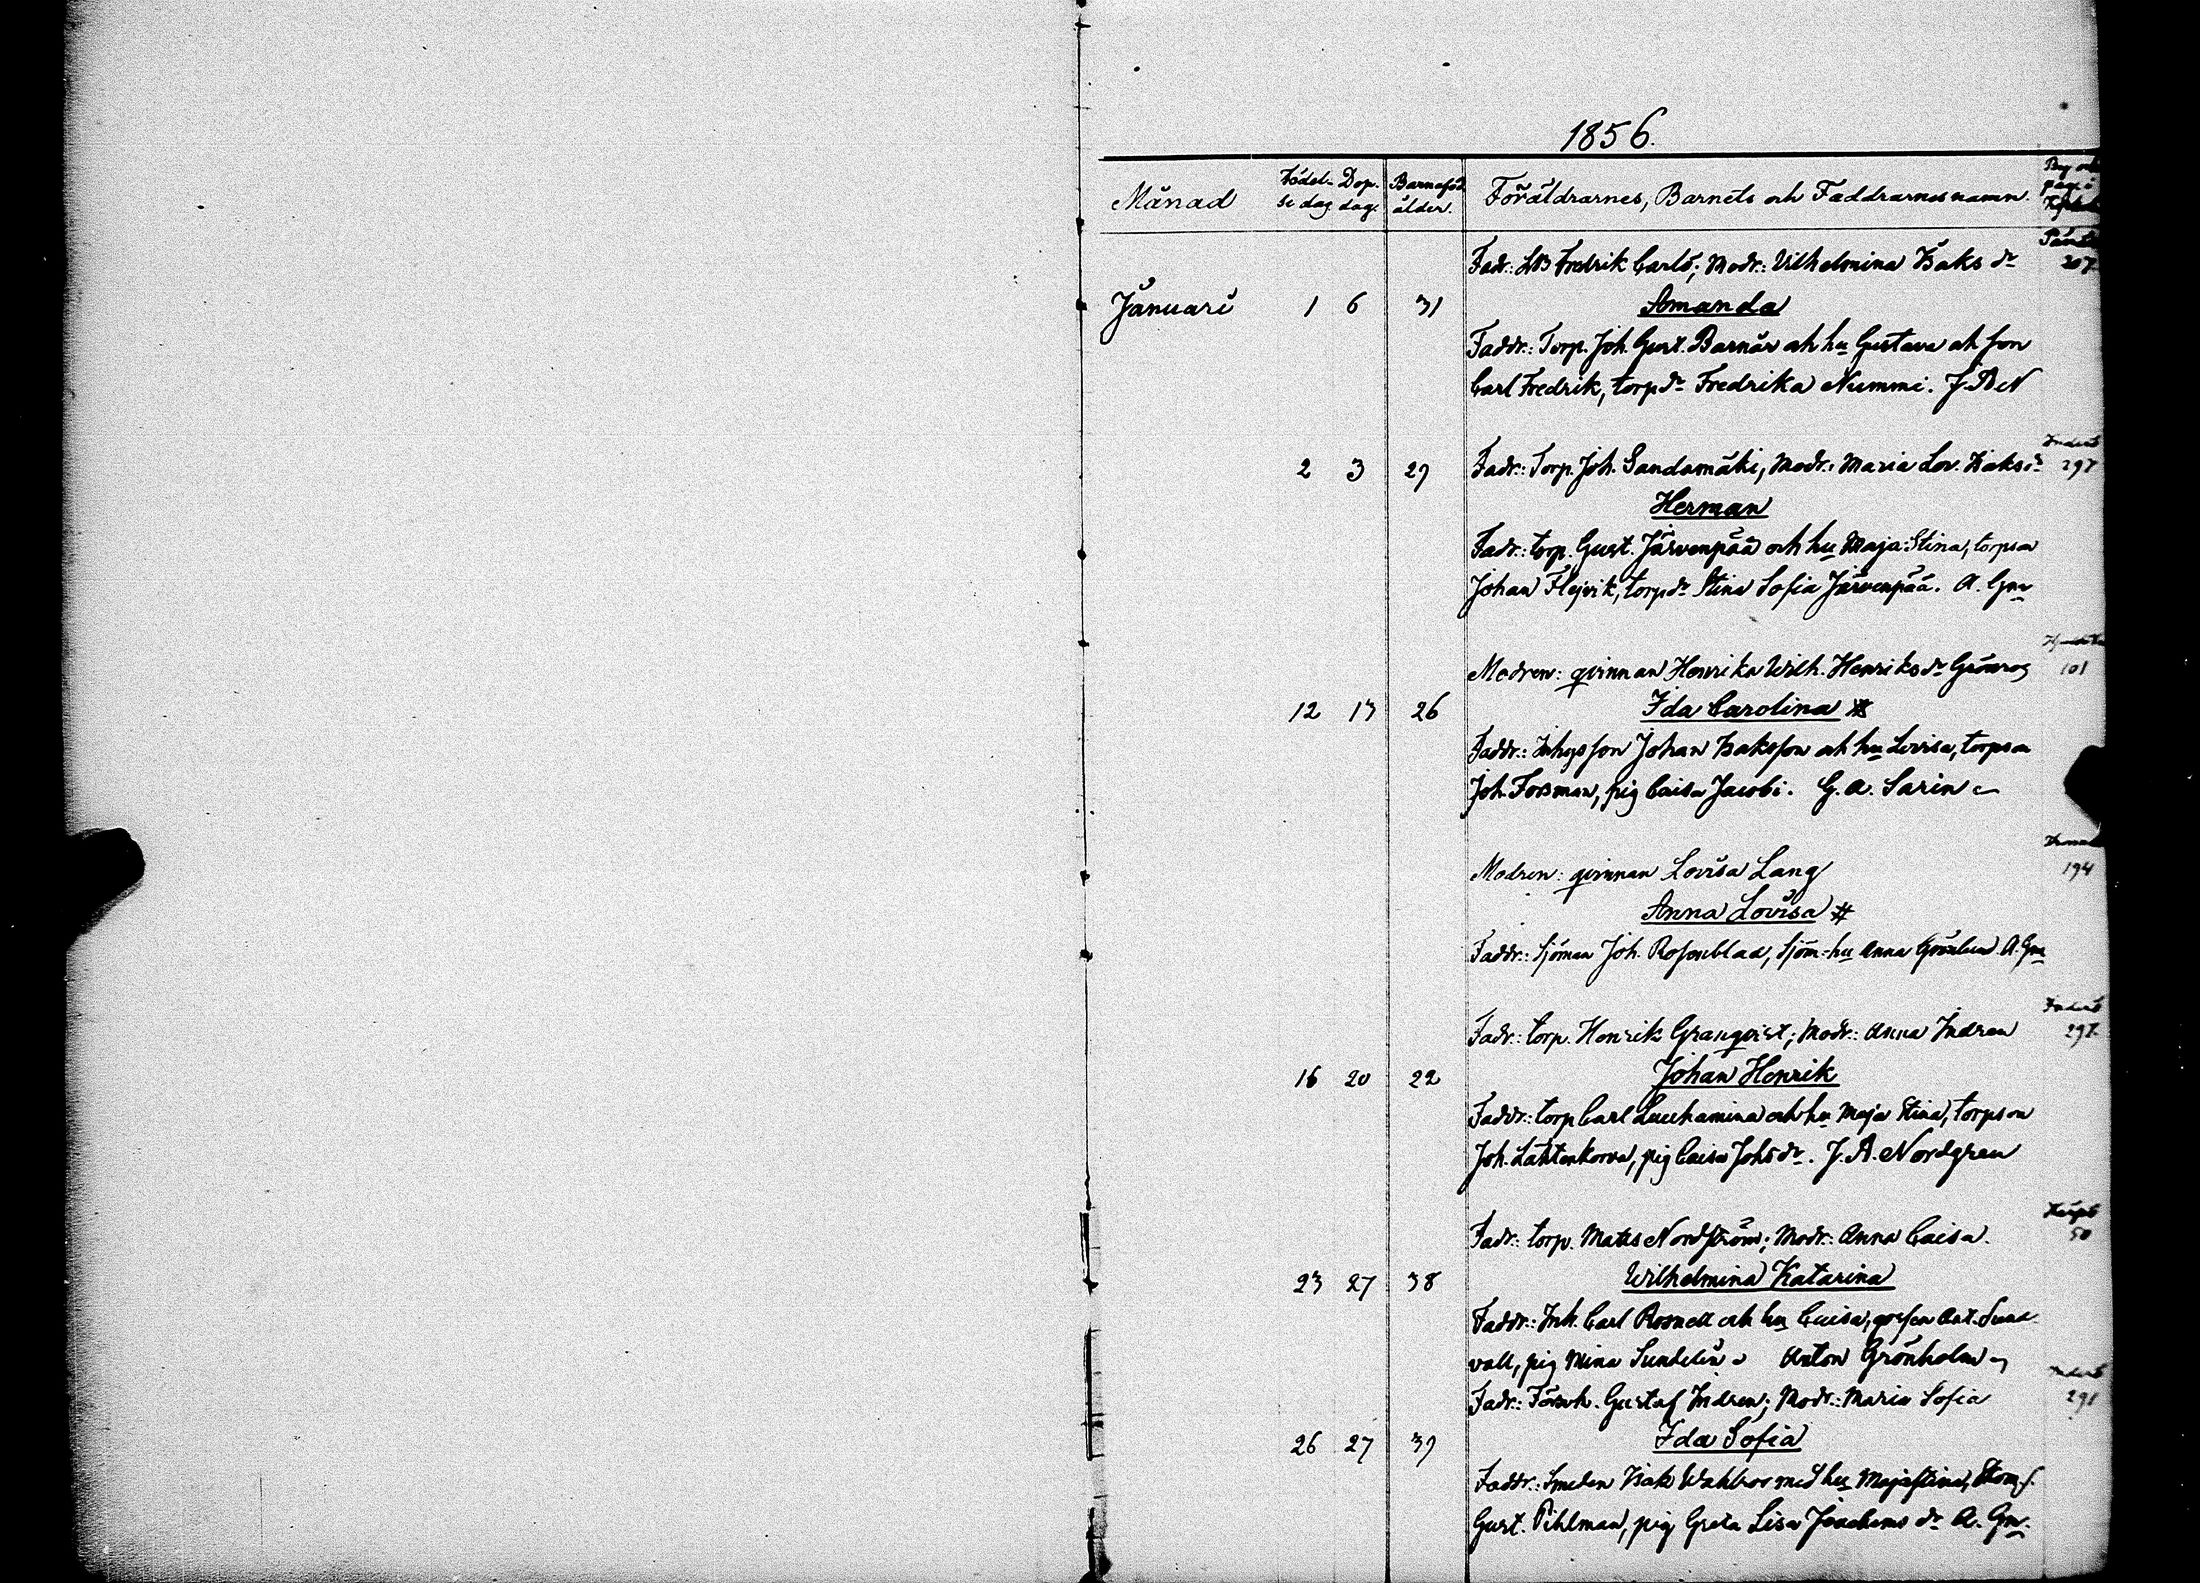 1856.
Månad
Födel- Dop.
se dag dag.
Barnaföd.
ålder.
Föräldrarnes, Barnets och Faddrarnes namn.
Fadr: LB Fredrik Carls; Modr: Vilhelmina Isaks dr 207
Januari 1 6 31 Amanda
Faddr: Torp. Joh. Gust. Barnär och hu Gustava och son
Carl Fredrik, torp dr Fredrika Nummi. J. A. N
2 3 29 Fadr: Torp. Joh. Sandamäki, Modr: Maria Lov. Isaks dr 297
Herman
Fadr: torp. Gust. Järvenpää och hu Maja Stina, torpson
Johan Flejvik, torp dr Stina Sofia Järvenpää. A. Gm
Modren: qvinnan Henrika Wilh. Henriks dr Grönroos 101
12 13 26 Ida Carolina #
Faddr: Inhysson Johan Isaksson och hu Lovisa, torpson
Joh. Forsman, pig Caisa Jacobi. G. A. Sarin
Modren: qvinnan Lovisa Lang 194
Anna Lovisa #
Faddr: Sjöman Joh. Rosenblad, Sjöm-hu Anna Grönlund A. Gm
Fadr: torp. Henrik Granqvist; Modr: Anna Indren 297
16 20 22 Johan Henrik
Faddr: torp Carl Leuchamina och hu Maja Stina, torpson
Joh. Lähtenkorva, pig Caisa Johs dr. J. A. Nordgren
Fadr: torp. Mats Nordström; Modr: Anna Caisa. 50
23 27 38 Wilhelmina Katarina
Faddr: Inh. Carl Rosnell och hu Caisa, gossen Ant. Sund-
vall, pig Mina Sundelin Anton Grönholm
Fadr: Försvh. Gustaf Indren; Modr: Maria Sofia 291
26 27 39 Ida Sofia
Faddr: Smeden Isak Wahlroos med hu Majastina,
Gust. Pihlman, pig Greta Lisa Joachims dr A. Gm.